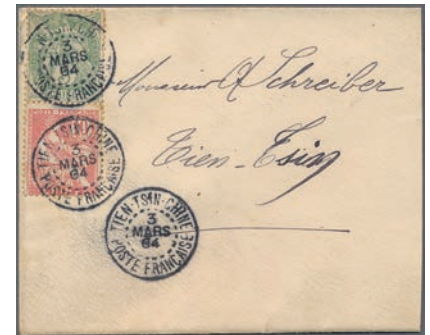 TSIN-CHINE
3
MARS
64
POSTE FRANÇAISE
TIEN-TSIN-CHINE
3
MARS
64
POSTE FRANÇAISE
TIEN-TSIN-CHINE
3
MARS
64
POSTE FRANÇAISE
Monsieur A Schreiber
Tien-Tsin